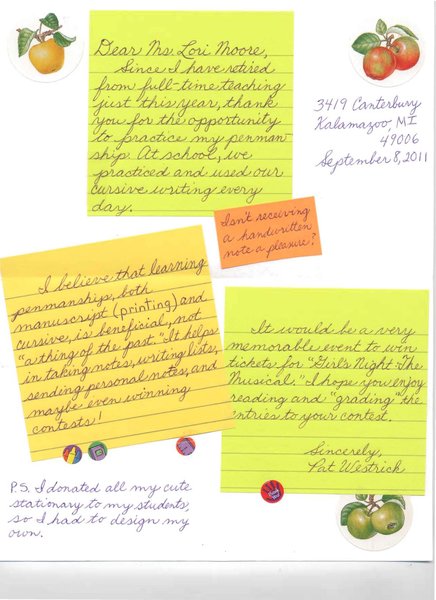 Dear Ms. Lori Moore,
Since I have retired
from full-time teaching
just this year, thank
you for the opportunity
to practice my penman-
ship. At school, we
practiced and used our
cursive writing every
day.
3419 Canterbury
Kalamazoo, MI
49006
September 8, 2011
Isn't receiving
a handwritten
note a pleasure?
I believe that learning
penmanship, both
manuscript (printing) and
cursive, is beneficial, not
"a thing of the past." It helps
in taking notes, writing lists,
sending personal notes, and
maybe even winning
contests!
It would be a very
memorable event to win
tickets for "Girl's Night The
Musical." I hope you enjoy
reading and "grading" the
entries to your contest.
Sincerely,
Pat Westrick
P.S. I donated all my cute
stationary to my students,
so I had to design my
own.